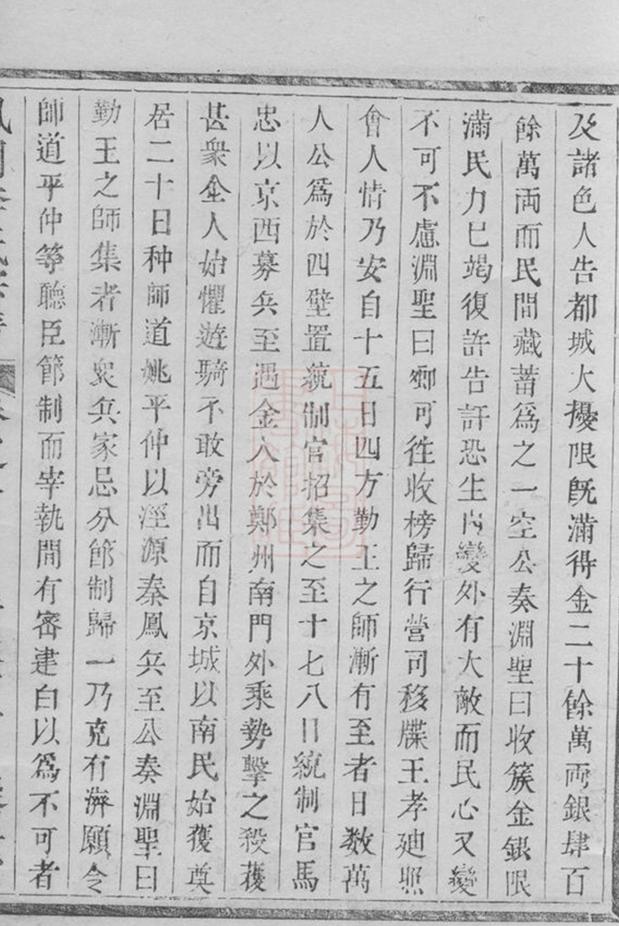 及諸色人告都城大擾限旣滿得金二十餘萬両銀肆百
餘萬両而民間藏蓄爲之一空公奏淵聖曰收簇金銀限
滿民力巳竭復許告訐恐生內變外有大敵而民心又變
不可不慮淵聖曰卿可徃收榜歸行營司移牒王孝廸照
會人情乃安自十五日四方勤王之師漸有至者日数萬
人公爲於四壁置綂制官招集之至十七八日綂制官馬
忠以京西募兵至遇金人於鄭州南門外乘勢擊之殺獲
甚衆金人始懼遊騎不敢旁出而自京城以南民始獲奠
居二十日种師道姚平仲以涇源秦鳳兵至公奏淵聖曰
勤王之師集者漸衆兵家忌分節制歸一乃克有濟願令
師道平仲等聽臣節制而宰執間有密建白以爲不可者